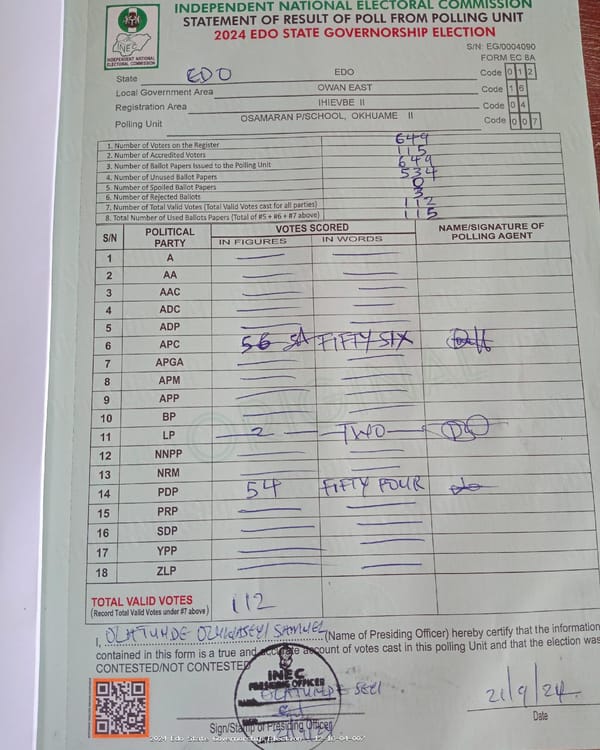 INDEPENDENT NATIONAL ELECTORAL COMMISSION
STATEMENT OF RESULT OF POLL FROM POLLING UNIT
2024 EDO STATE GOVERNORSHIP ELECTION
INEC
INDEPENDENT NATIONAL ELECTORAL COMMISSION
S/N: EG/0004090
FORM EC 8A
State EDO EDO Code 0 1 2
Local Government Area OWAN EAST Code 1 6
Registration Area IHIEVBE II Code 0 4
Polling Unit OSAMARAN P/SCHOOL, OKHUAME II Code 0 0 7
1. Number of Voters on the Register 649
2. Number of Accredited Voters 115
3. Number of Ballot Papers Issued to the Polling Unit 649
4. Number of Unused Ballot Papers 534
5. Number of Spoiled Ballot Papers 0
6. Number of Rejected Ballots 3
7. Number of Total Valid Votes (Total Valid Votes cast for all parties) 112
8. Total Number of Used Ballots Papers (Total of #5 + #6 + #7 above) 115
S/N POLITICAL PARTY VOTES SCORED NAME/SIGNATURE OF POLLING AGENT
IN FIGURES IN WORDS
1 A
2 AA
3 AAC
4 ADC
5 ADP
6 APC 56 FIFTY SIX
7 APGA
8 APM
9 APP
10 BP
11 LP 2 TWO
12 NNPP
13 NRM
14 PDP 54 FIFTY FOUR
15 PRP
16 SDP
17 YPP
18 ZLP
TOTAL VALID VOTES 112
(Record Total Valid Votes under #7 above)
I, OLATUNDE OLUWASEYI SAMUEL (Name of Presiding Officer) hereby certify that the information
contained in this form is a true and accurate account of votes cast in this polling Unit and that the election was
CONTESTED/NOT CONTESTED
INEC
PRESIDING OFFICER
OLATUNDE SEYI
21/9/24
Sign/Stamp of Presiding Officer Date
2024 Edo State Governorship Election - 12-16-04-007